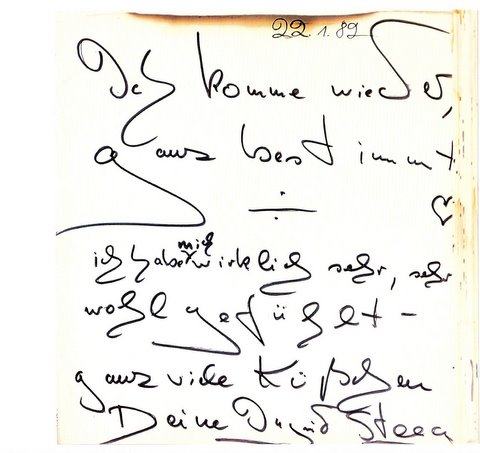 22.1.89
Ich komme wieder,
ganz bestimmt
ich habe mich wirklich sehr, sehr
wohl gefühlt -
ganz viele Küßchen
Deine Ingrid